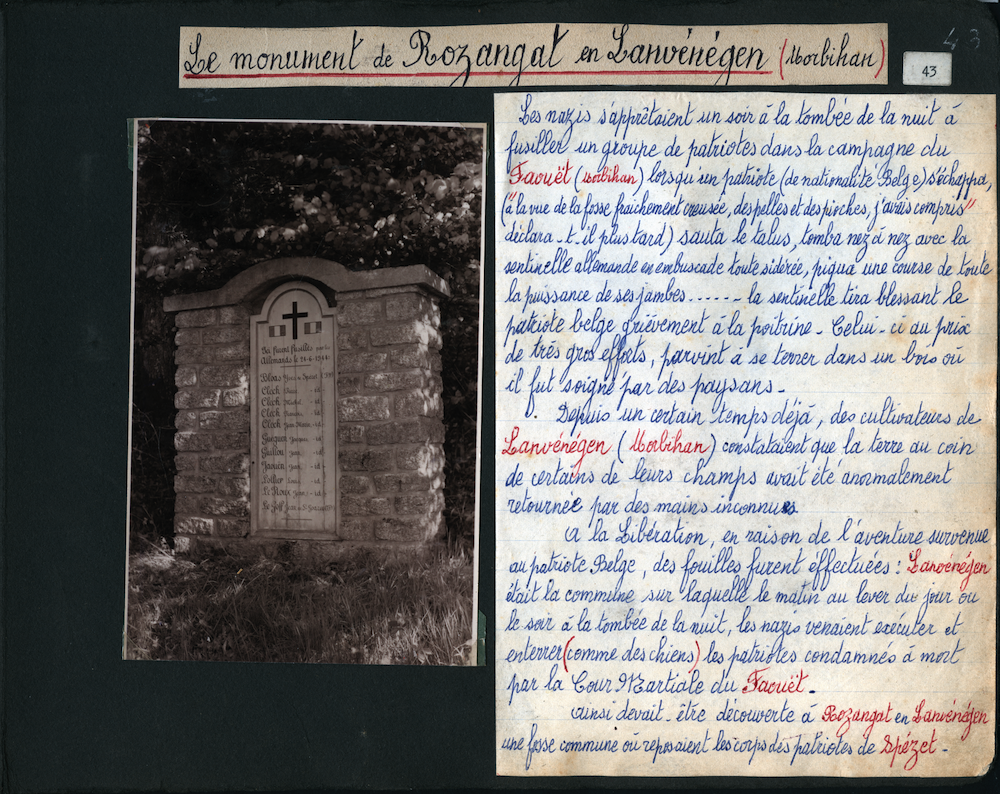 Le monument de Rozangat en Lanvénégen (Morbihan)
43
43
Les nazis s'apprêtaient un soir à la tombée de la nuit à
fusiller un groupe de patriotes dans la campagne du
Faouët (Morbihan) lorsqu'un patriote (de nationalité Belge) s'échappa,
("à la vue de la fosse fraîchement creusée, des pelles et des pioches, j'avais compris"
déclara-t-il plus tard) sauta le talus, tomba nez à nez avec la
sentinelle allemande en embuscade toute sidérée, piqua une course de toute
la puissance de ses jambes...... la sentinelle tira blessant le
patriote belge grièvement à la poitrine - Celui-ci au prix
de très gros efforts, parvint à se terrer dans un bois où
il fut soigné par des paysans -
Depuis un certain temps déjà, des cultivateurs de
Lanvénégen (Morbihan) constataient que la terre au coin
de certains de leurs champs avait été anormalement
retournée par des mains inconnues
A la Libération, en raison de l'aventure survenue
au patriote Belge, des fouilles furent éffectuées : Lanvénégen
était la commune sur laquelle le matin au lever du jour ou
le soir à la tombée de la nuit, les nazis venaient exécuter et
enterrer (comme des chiens) les patriotes condamnés à mort
par la Cour Martiale du Faouët -
Ainsi devait-être découverte à Rozangat en Lanvénégen
une fosse commune où reposaient les corps des patriotes de Spézet -
Ici furent fusillés par les
Allemands le
Bloas
Clech
Clech
Clech
Clech
Guéguen
Guillou
Jaouen
Lollier
Le Roux
Le Goff